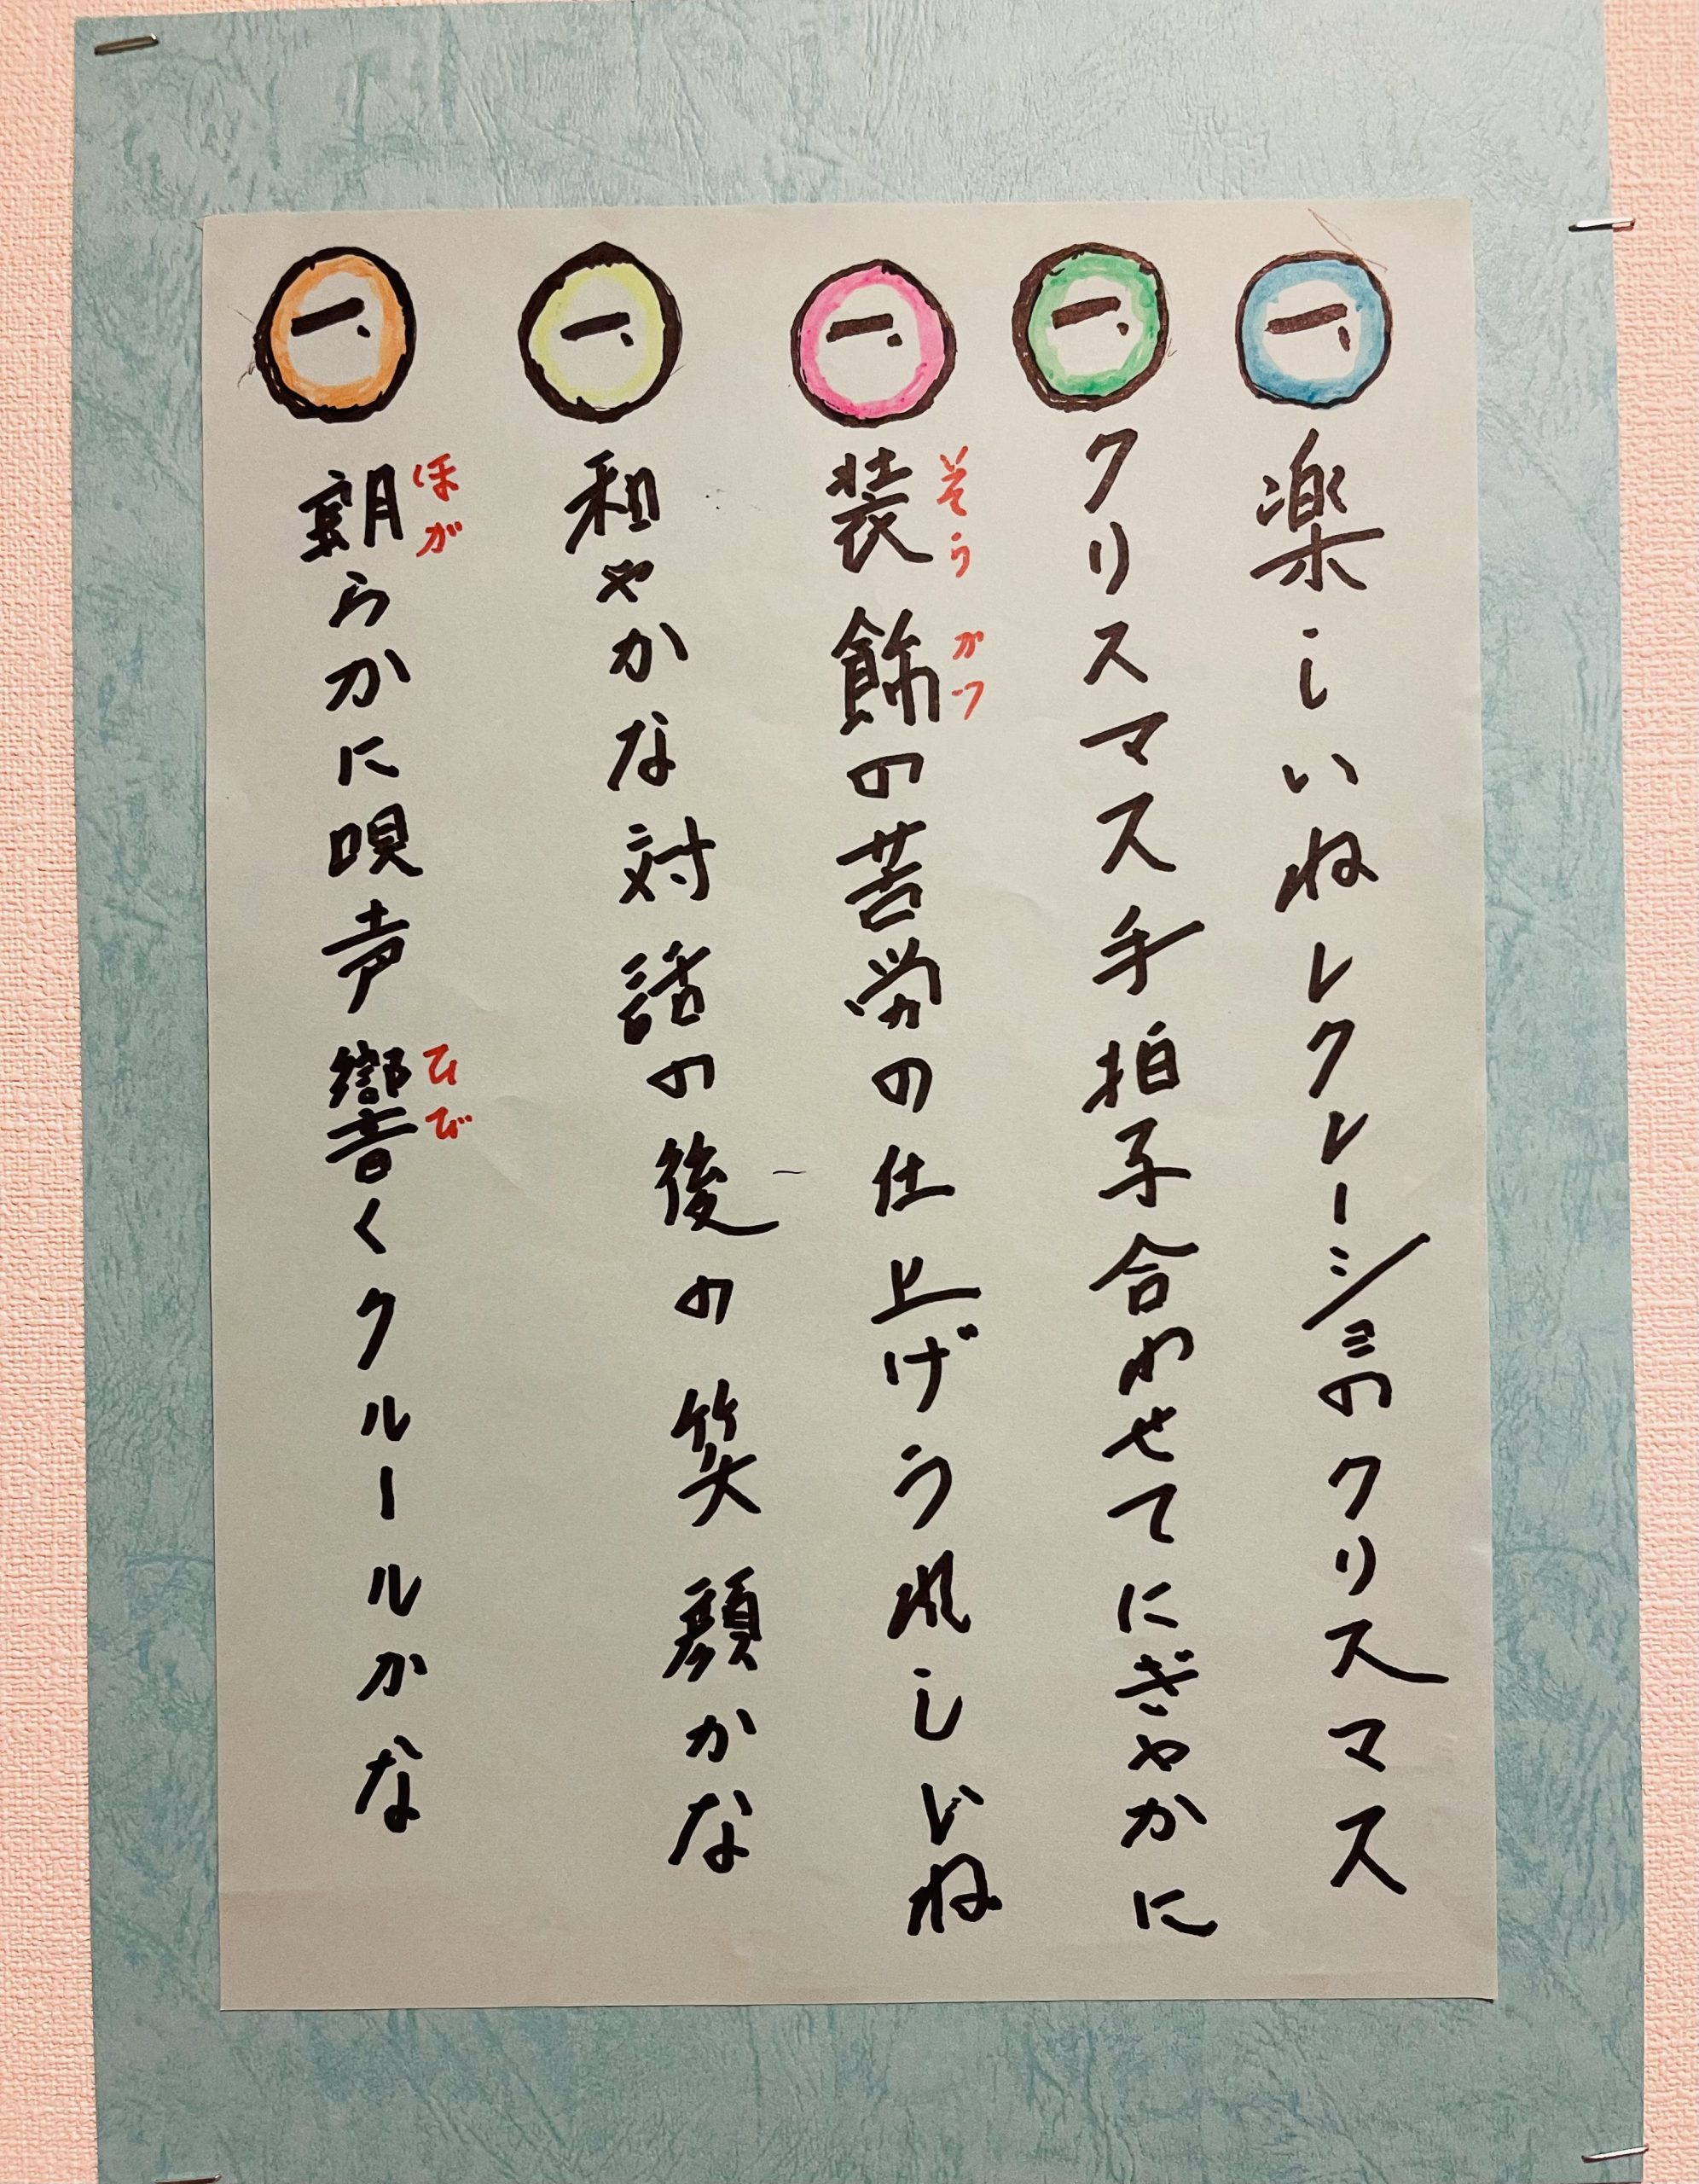 一、楽しいねレクレーショの クリスマス
一、クリスマス手拍子合わせてにぎやかに
そう かつ
一、装飾の苦労の仕上げうれしいね
一、和やかな対話の後の笑顔かな
ほが ひび
一、朗らかに唄声響くクルールかな